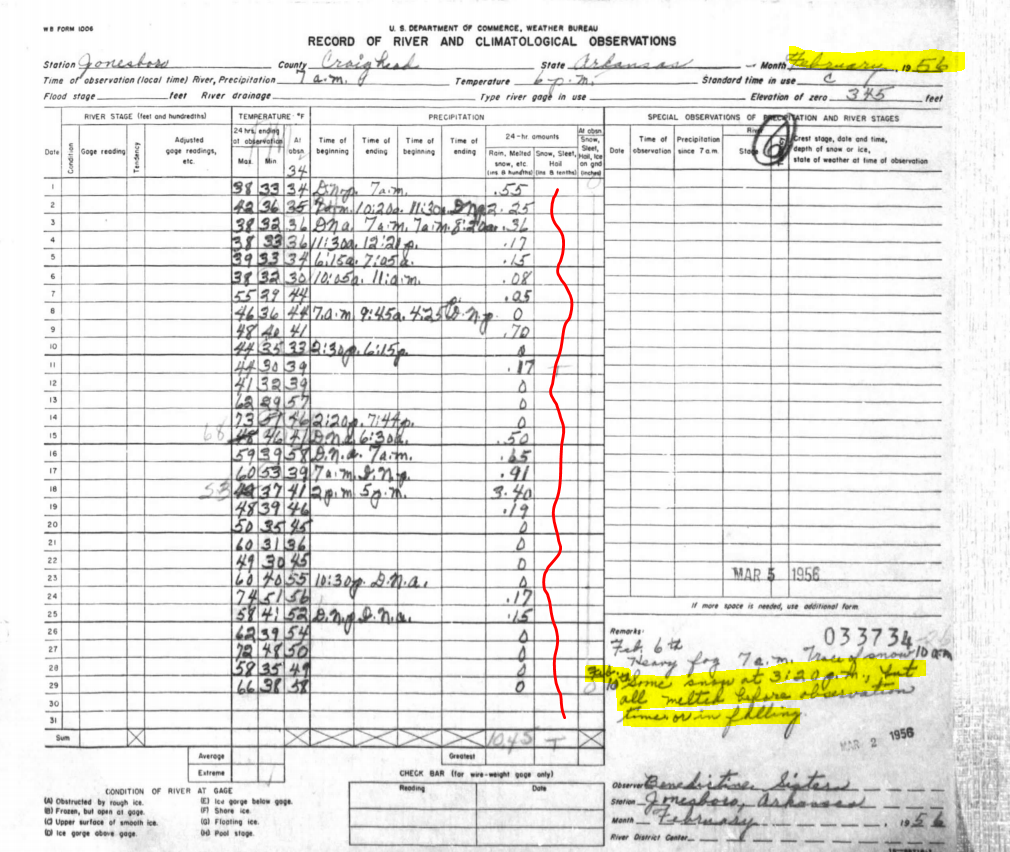 WB FORM 1006
U. S. DEPARTMENT OF COMMERCE, WEATHER BUREAU
RECORD OF RIVER AND CLIMATOLOGICAL OBSERVATIONS
Station Jonesboro County Craighead State Arkansas Month February, 1956
Time of observation (local time) River, Precipitation 7 a.m. Temperature 6 p.m. Standard time in use C
Flood stage feet River drainage Type river gage in use Elevation of zero 345 feet
RIVER STAGE (feet and hundredths) TEMPERATURE °F PRECIPITATION SPECIAL OBSERVATIONS OF PRECIPITATION AND RIVER STAGES
Date Condition Gage reading Tendency Adjusted gage readings, etc. 24 hrs. ending at observation Max. Min At obsn. Time of beginning Time of ending Time of beginning Time of ending 24-hr. amounts Rain, Melted snow, etc. (ins & hundths) Snow, Sleet, Hail (ins & tenths) At obsn. Snow, Sleet, Hail, Ice on gnd (inches) Date Time of observation Precipitation since 7 a.m. River Stage Crest stage, date and time, depth of snow or ice, state of weather at time of observation
34
1 38 33 34 D.N.p. 7a.m. .55
2 42 36 35 7a.m. 10:20a. 11:30a. D.N.p. 2.25
3 38 32 36 D.N.a. 7a.m. 7a.m. 8:20a. .36
4 38 33 36 11:30a. 12:21p. .17
5 39 33 34 6:15a. 7:05a. .15
6 38 32 30 10:05a. 11:a.m. .08
7 55 29 44 .05
8 46 36 44 7a.m. 9:45a. 4:25p. D.N.p. 0
9 48 40 41 .70
10 44 35 33 2:30p. 6:15p. 0
11 44 30 39 .17
12 41 32 39 0
13 62 29 57 0
14 73 51 46 2:20p. 7:44p. 0
15 68 48 46 41 D.N.a. 6:30a. .50
16 59 39 58 D.N.a. 7a.m. .65
17 60 53 39 7a.m. D.N.p. .91
18 53 37 41 2p.m. 5p.m. 3.40
19 48 39 46 .19
20 50 35 45 0
21 60 31 36 0
22 49 30 45 0
23 60 40 55 10:30p. D.N.a. 0
24 74 51 56 .17
25 58 41 52 D.N.p. D.N.a. .15
26 62 39 54 0
27 72 48 50 0
28 58 35 49 0
29 66 38 58 0 0
30
31
Sum 10.45 T
MAR 5 1956
If more space is needed, use additional form
Remarks: 033734
Feb. 6th
Heavy fog 7 a.m. Trace of snow 10 a.m
Feb. 10th Some snow at 3:20 p.m., but
all melted before observation
time or in falling.
MAR 2 1956
Average
Extreme
Greatest
CHECK BAR (for wire-weight gage only)
Reading Date
CONDITION OF RIVER AT GAGE
(A) Obstructed by rough ice. (E) Ice gorge below gage.
(B) Frozen, but open at gage. (F) Shore ice.
(C) Upper surface of smooth ice. (G) Floating ice.
(D) Ice gorge above gage. (H) Pool stage.
Observer Benedictine Sisters
Station Jonesboro, Arkansas
Month February 1956
River District Center